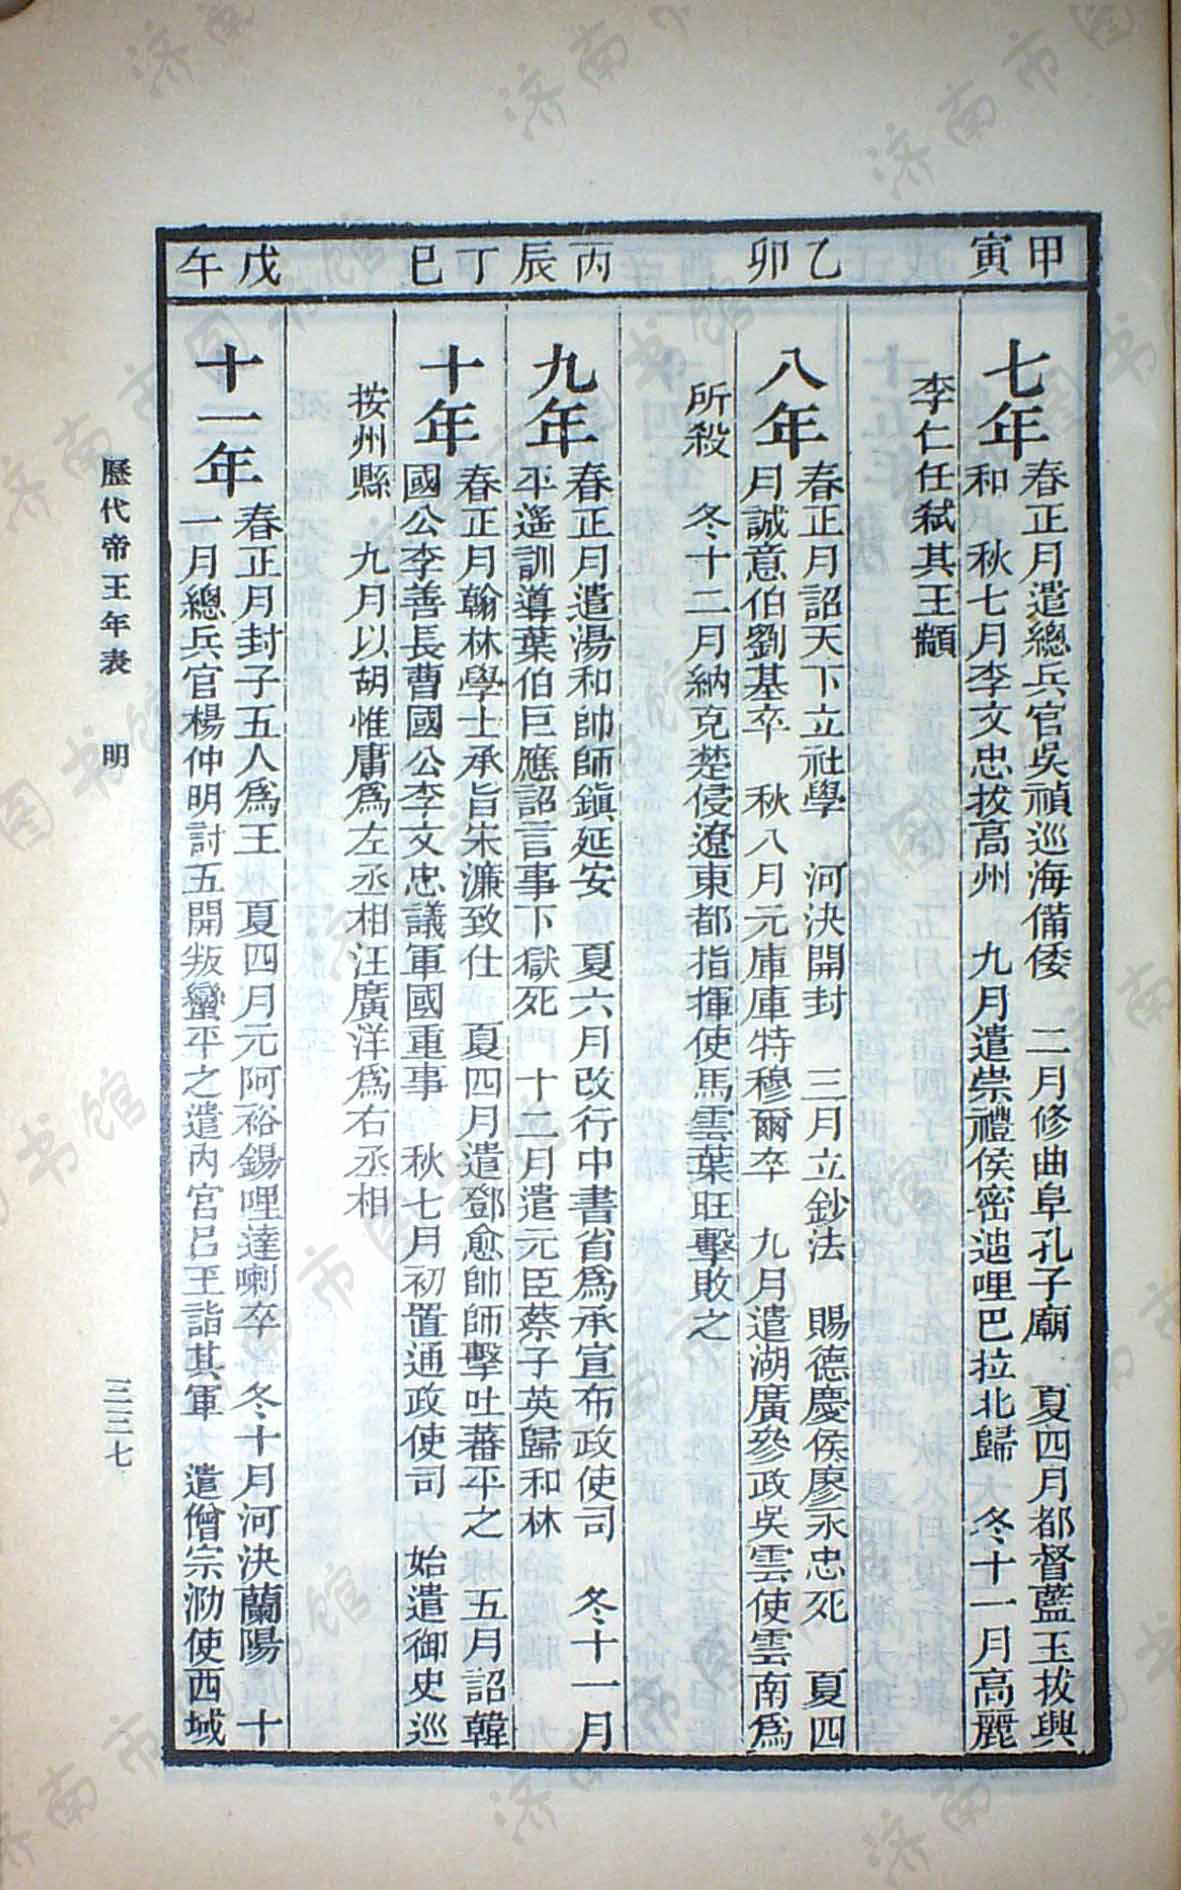 甲寅
七年
春正月遣總兵官吳禎巡海備倭　二月修曲阜孔子廟　夏四月都督藍玉拔興
和　秋七月李文忠拔高州　九月遣崇禮侯密迪哩巴拉北歸　冬十一月高麗
李仁任弒其王顓
乙卯
八年
春正月詔天下立社學　河決開封　三月立鈔法　賜德慶侯廖永忠死　夏四
月誠意伯劉基卒　秋八月元庫庫特穆爾卒　九月遣湖廣參政吳雲使雲南爲
所殺　冬十二月納克楚侵遼東都指揮使馬雲葉旺擊敗之
丙辰
九年
春正月遣湯和帥師鎮延安　夏六月改行中書省爲承宣布政使司　冬十一月
平遙訓導葉伯巨應詔言事下獄死　十二月遣元臣蔡子英歸和林
丁巳
十年
春正月翰林學士承旨宋濂致仕　夏四月遣鄧愈帥師擊吐蕃平之　五月詔韓
國公李善長曹國公李文忠議軍國重事　秋七月初置通政使司　始遣御史巡
按州縣　九月以胡惟庸爲左丞相汪廣洋爲右丞相
戊午
十一年
春正月封子五人爲王　夏四月元阿裕錫哩達喇卒　冬十月河決蘭陽　十
一月總兵官楊仲明討五開叛蠻平之遣內官呂玉詣其軍　遣僧宗泐使西域
歷代帝王年表　明
三三七
济南市图书馆